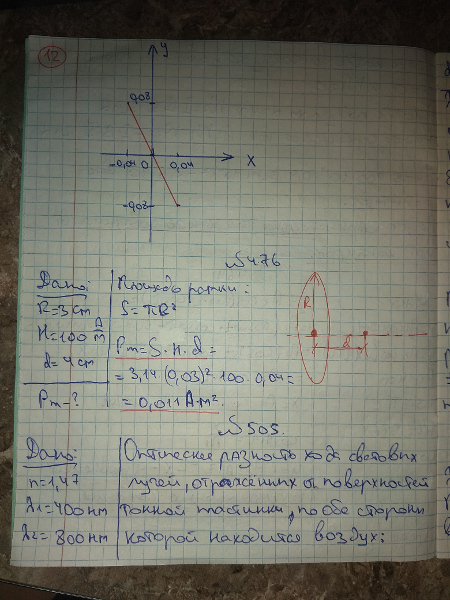 12
y
0,08
-0,04 0 0,04 x
-0,08
№476
Дано:
R=3 cm
H=100 A/m
d=4 cm
Pm-?
Площадь рамки:
S=πR²
Pm=S·H·d=
=3,14·(0,03)²·100·0,04=
=0,011 A·м².
R
d
№505.
Дано:
n=1,47
λ1=400 нм
λ2=800 нм
Оптическая разность хода световых
лучей, отражённых от поверхностей
тонкой пластинки, по обе стороны
которой находится воздух: